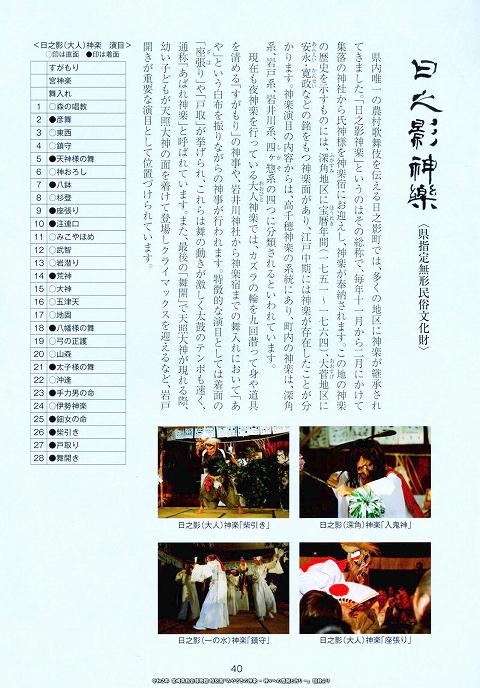 日之影神楽
〈県指定無形民俗文化財〉
県内唯一の農村歌舞伎を伝える日之影町では、多くの地区に神楽が継承され
てきました。「日之影神楽」というのはその総称で、毎年十一月から二月にかけて
集落の神社から氏神様を神楽宿にお迎えし、神楽が奉納されます。この地の神楽
の歴史を示すものには、深角地区に宝暦年間(一七五一〜一七六四)、大菅地区に
安永・寛政などの銘をもつ神楽面があり、江戸中期には神楽が存在したことが分
かります。神楽演目の内容からは、高千穂神楽の系統にあり、町内の神楽は、深角
系、岩戸系、岩井川系、四ヶ惣系の四つに分類されるといわれています。
現在も夜神楽を行っている大人神楽では、カズラの輪を九回潜って身や道具
を清める「すがもり」の神事や、岩井川神社から神楽宿までの舞入れにおいて「あ
や」という白布を振りながらの神事が行われます。特徴的な演目としては着面の
「座張り」や「戸取」が挙げられ、これらは舞の動きが激しく太鼓のテンポも速く、
通称「あばれ神楽」と呼ばれています。また、最後の「舞開」で天照大神が現れる際、
幼い子どもが天照大神の面を着けて登場しクライマックスを迎えるなど、岩戸
開きが重要な演目として位置づけられています。
<日之影(大人)神楽 演目>
○印は直面 ●印は着面
すがもり
宮神楽
舞入れ
1 ○森の唱教
2 ●彦舞
3 ○東西
4 ○鎮守
5 ●天神様の舞
6 ○神おろし
7 ●八鉢
8 ○杉登
9 ●座張り
10 ●注連口
11 ○みこやほめ
12 ○武智
13 ○岩潜り
14 ●荒神
15 ○大神
16 ○五津天
17 ○地固
18 ●八幡様の舞
19 ○弓の正護
20 ○山森
21 ●太子様の舞
22 ○沖逢
23 ●手力男の命
24 ○伊勢神楽
25 ●鈿女の命
26 ●柴引き
27 ●戸取り
28 ●舞開き
日之影(大人)神楽「柴引き」
日之影(深角)神楽「入鬼神」
日之影(一の水)神楽「鎮守」
日之影(大人)神楽「座張り」
40